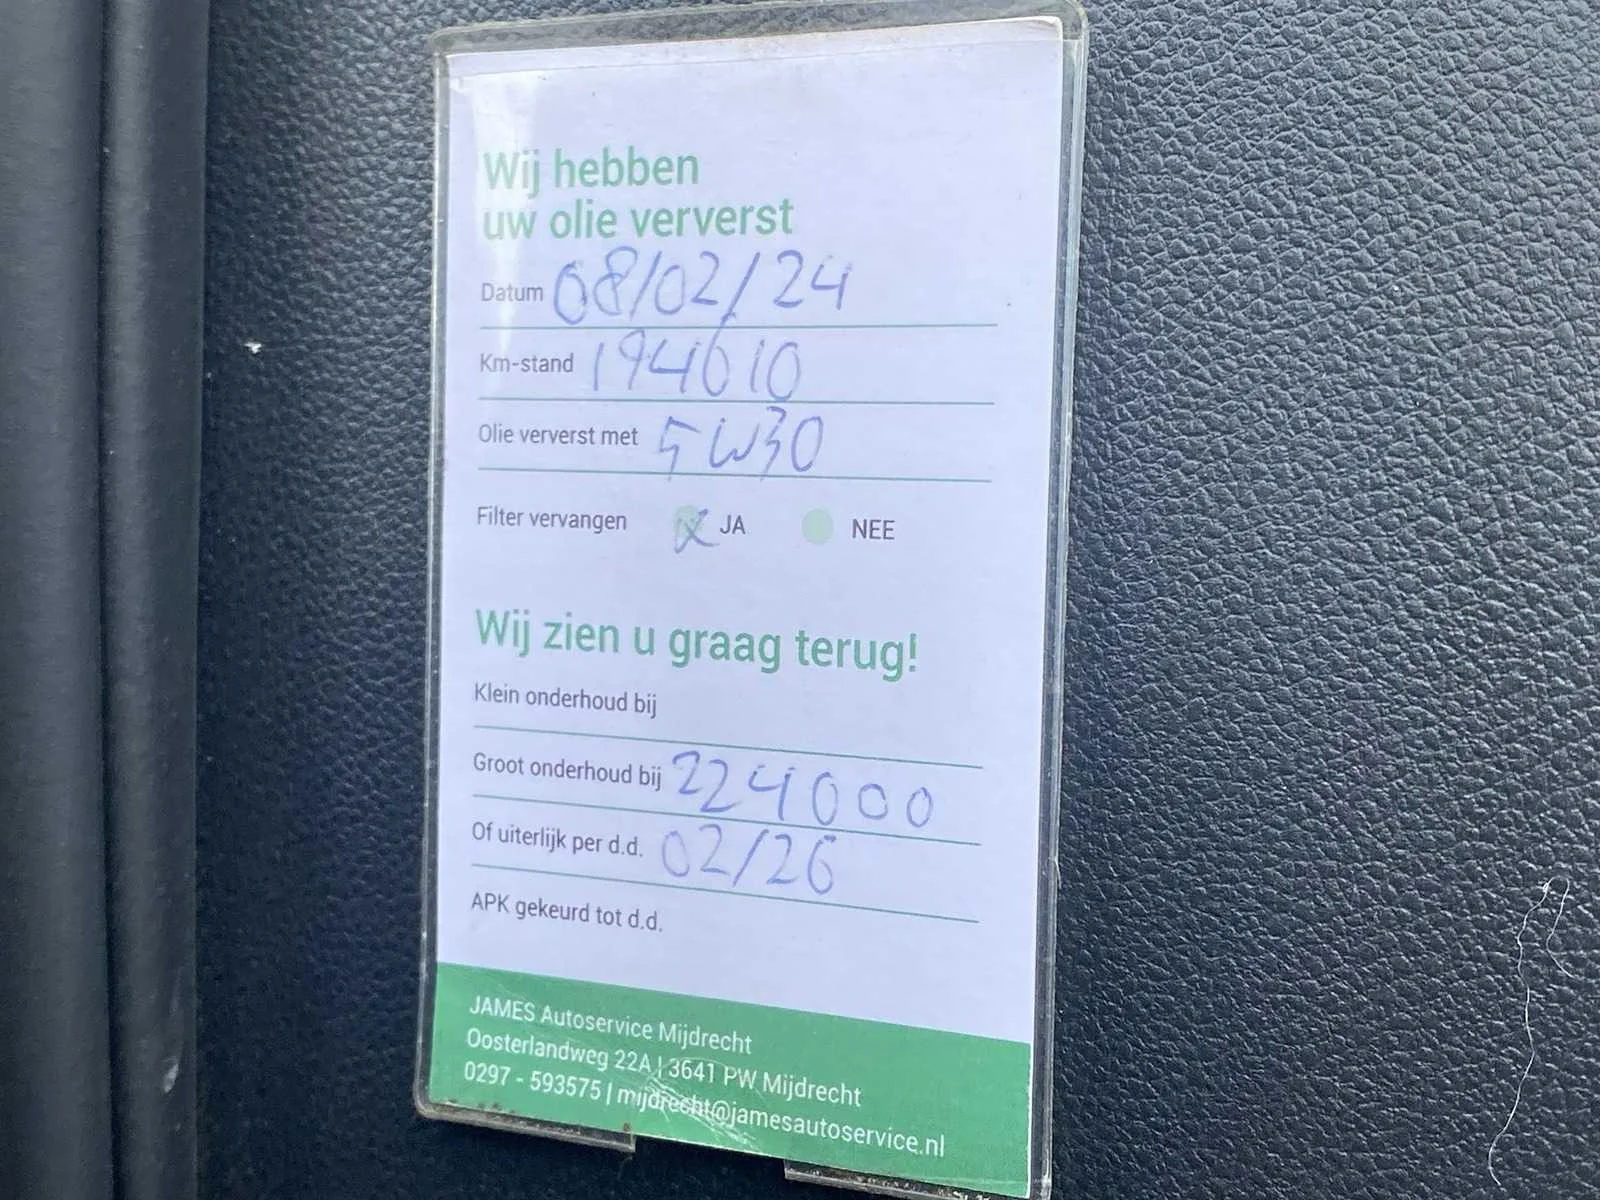 Wij hebben
uw olie ververst
Datum 08/02/24
Km-stand 194010
Olie ververst met 5W30
Filter vervangen X JA NEE
Wij zien u graag terug!
Klein onderhoud bij
Groot onderhoud bij 224000
Of uiterlijk per d.d. 02/26
APK gekeurd tot d.d.
JAMES Autoservice Mijdrecht
Oosterlandweg 22A | 3641 PW Mijdrecht
0297 - 593575 | mijdrecht@jamesautoservice.nl